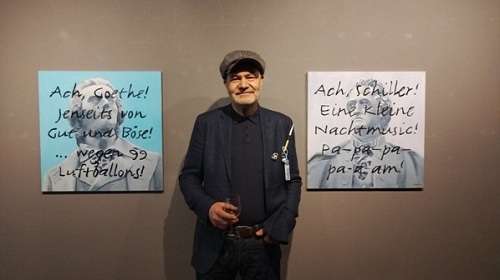 Ach, Goethe!
Jenseits von
Gut und Böse!
... wegen 99
Luftballons!
Ach, Schiller!
Eine kleine
Nachtmusic!
Pa-pa-pa-
pa-a-am!